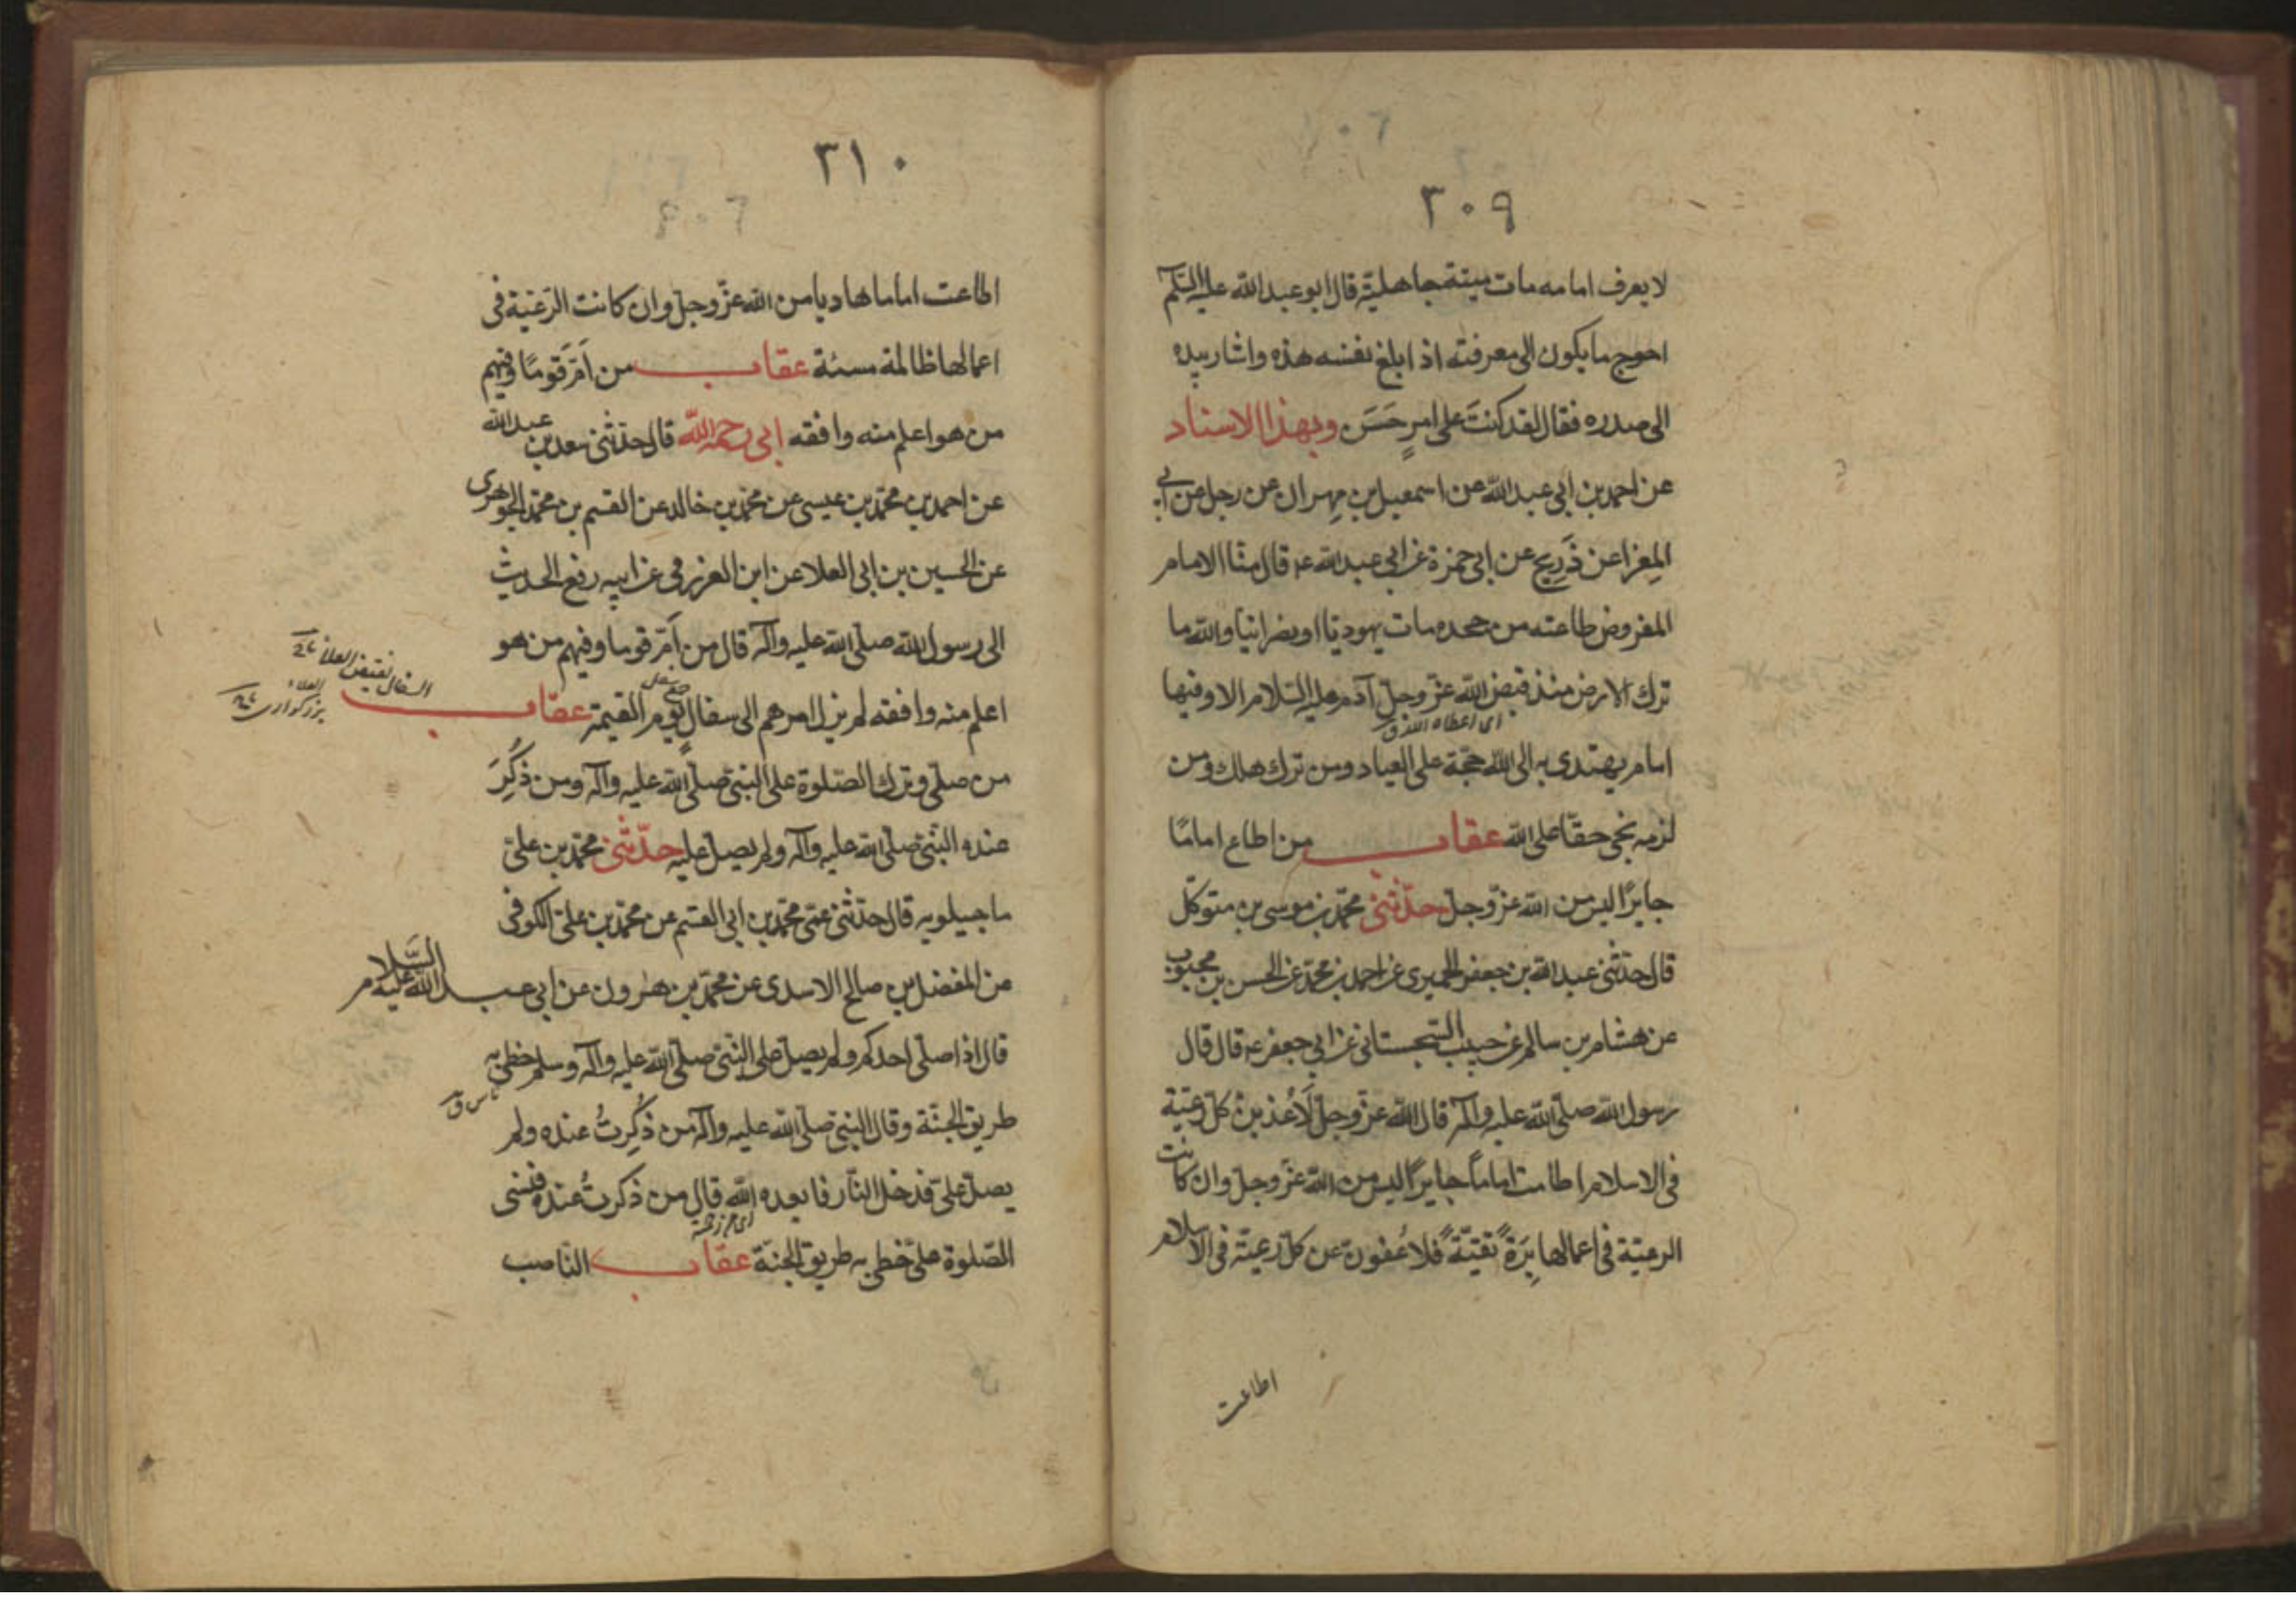 ٣٠٩
لا يعرف امامه مات ميتة جاهلية قال ابو عبد الله عليه السلم
احوج ما يكون الى معرفته اذا بلغ نفسه هذه واشار بيده
الى صدره فقال لقد كنتَ على امرٍ حَسَن وبهذا الاسناد
عن احمد بن ابى عبد الله عن اسمعيل بن مهران عن رجل عن ابى
المِغرا عن ذَريح عن ابى حمزة عن ابى عبد الله ع قال منّا الامام
المفروض طاعته من جحده مات يهوديّا او نصرانيّا والله ما
ترك الارض منذ قبض الله عزّ وجلّ آدم عليه السّلام الا وفيها
امام يهتدى به الى الله حجّة على العباد ومن تركه هلك ومن
لزمه نجى حقّا على الله عقاب من اطاع امامًا
جايرًا ليس من الله عزّ وجلّ حدّثنى محمّد بن موسى بن متوكّل
قال حدّثنى عبد الله بن جعفر الحميرى عن احمد بن محمّد عن الحسن بن محبوب
عن هشام بن سالم عن حبيب السّجستانى عن ابى جعفر ع قال قال
رسول الله صلّى الله عليه وآله قال الله عزّ وجلّ لَاُعذبنّ كلّ رعيّة
فى الاسلام اطاعت اماماً جايراً ليس من الله عزّ وجلّ وان كانت
الرعيّة فى اعمالها بَرَةً تقيّةً فلاعُفونّ عن كلّ رعيّة فى الاسلام
اطاعت
٣١٠
اطاعت اماما هاديا من الله عزّ وجلّ وان كانت الرّعيّة فى
اعمالها ظالمة مسئة عقاب من اَمّ قَومًا وفيهم
من هو اعلم منه وافقه ابى رحمه الله قال حدّثنى سعد بن عبد الله
عن احمد بن محمّد بن عيسى عن محمّد بن خالد عن القسم بن محمّد الجوهرى
عن الحسين بن ابى العلا عن ابن العزرمى عن ابيه رفع الحديث
الى رسول الله صلّى الله عليه وآله قال من اَمّ قوما وفيهم من هو
اعلم منه وافقه لم يزل امرهم الى سفال يوم القيمة عقاب
السفال نقيض العلا
من صلّى وترك الصّلوة على النبىّ صلّى الله عليه وآله ومن ذُكِرَ
عنده النّبىّ صلّى الله عليه وآله ولم يصلّ عليه حدّثنى محمّد بن علىّ
ماجيلويه قال حدّثنى عمّى محمّد بن ابى القسم عن محمّد بن علىّ الكوفى
عن المفضل بن صالح الاسدى عن محمّد بن هٰرون عن ابى عبد الله عليه السّلام
قال اذا صلّى احدكم ولم يصلّ على النبىّ صلّى الله عليه وآله وسلم خطى به
طريق الجنّة وقال النبىّ صلّى الله عليه وآله من ذُكِرتُ عنده ولم
يصلّ علىّ فدخل النّار فابعده الله قال من ذكرتُ عنده فنسى
الصّلوة علىّ خطى به طريق الجنّة عقاب النّاصب